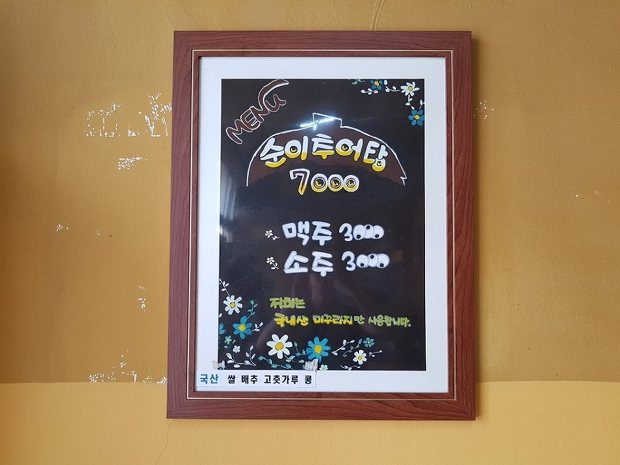 MENU
순이추어탕
7000
맥주 3000
소주 3000
저희는
국내산 미꾸라지만 사용합니다.
국산 쌀 배추 고춧가루 콩